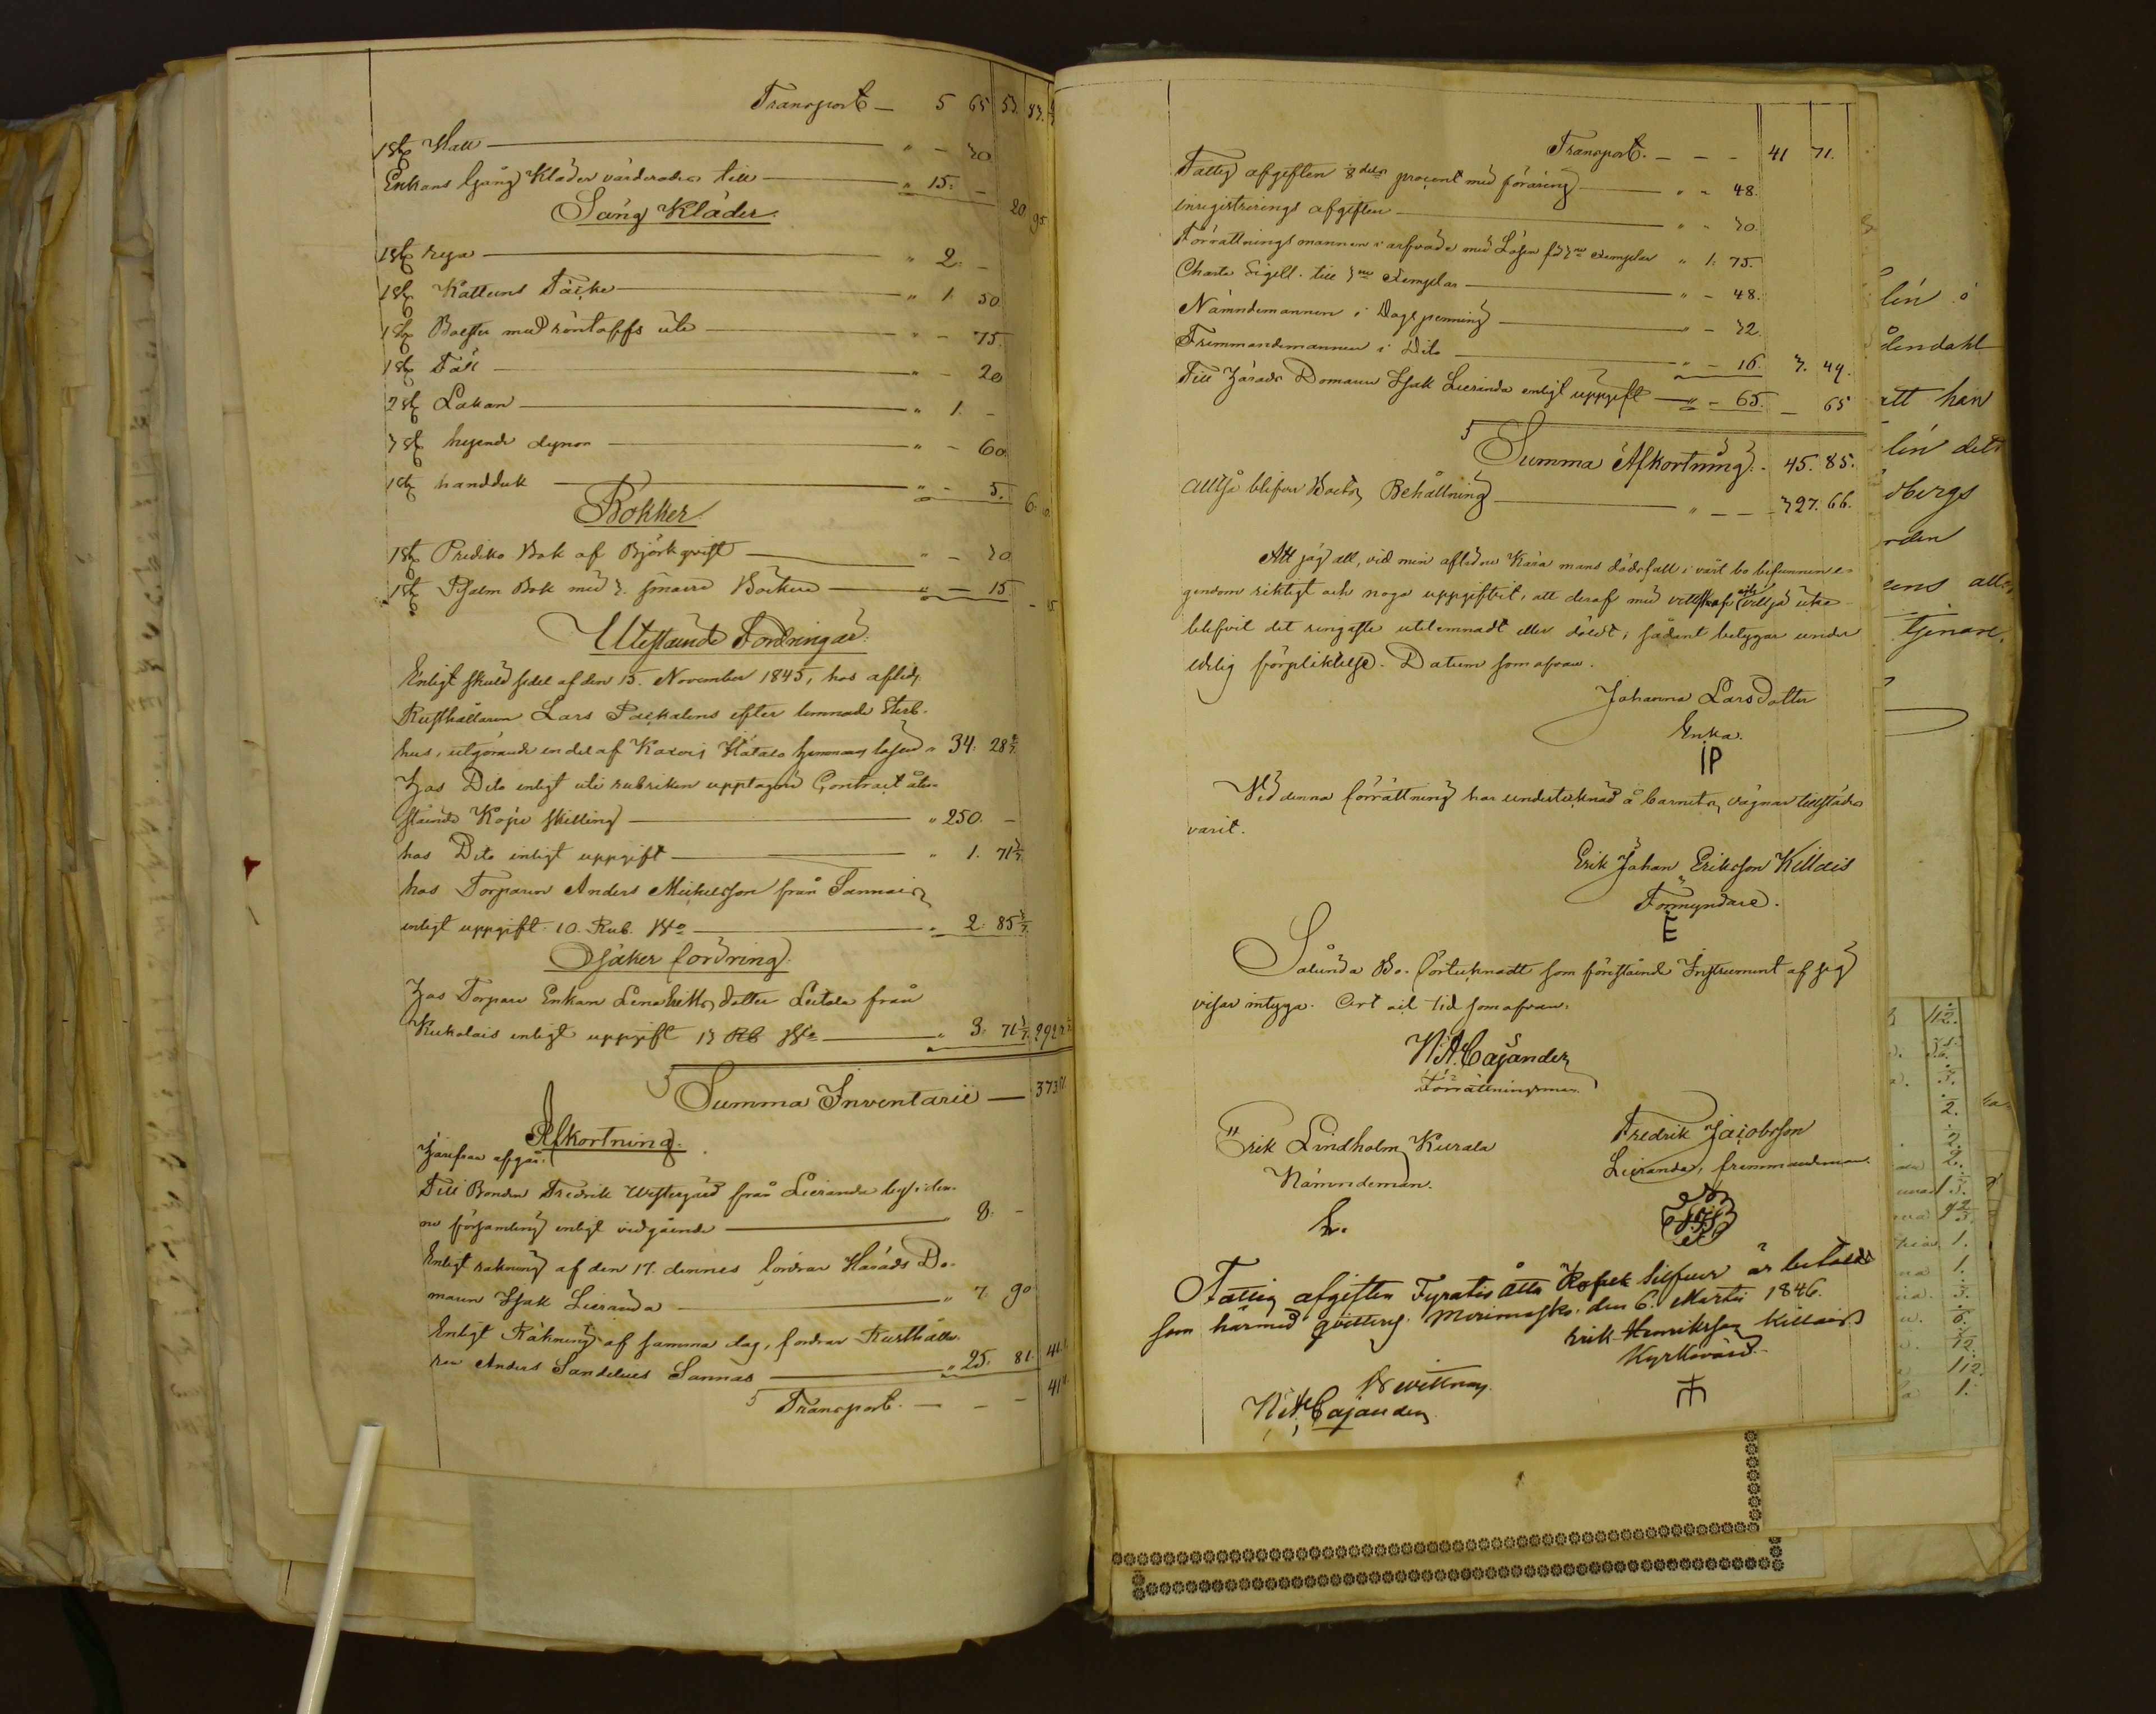 Transport — 5 65 53. 83.
1 st Hatt — " — 30
Enkans Gång Kläder värderades till — " 15. — 20 95
Säng Kläder.
1 st rya — " 2. —
1 st Kattuns Täcke — " 1. 50
1 st Bolster med — " — 75.
1 st Fäll — " — 20
2 st Lakan — " 1. —
3 st hyende dynor — " — 60.
1 st handduk — " — 5. 6.
Bökker.
1 st Prediko Bok af Björkqvist — " — 30
1 st Psalm Bok med 2. smärre Böcker — " — 15.
Utestående Fordringar.
Enligt skuld sedel af den 15. November 1845, hos aflidne
Rusthållaren Lars Packalens efter lemnade Sterb-
hus, utgörande en del af hemmans lösen " 34. 28 4/7.
Hos Dito enligt uti rubriken upptagne Contract åter-
stående Köpe skilling — " 250. —
hos Dito enligt uppgift — " 1. 71 3/7.
hos Torparen Anders Michelsson från Sannais
enligt uppgift 10. Rub. Bko — " 2. 85 5/7.
Osäker fordring.
Hos Torpare Enkan Lena Eriks dotter Leitola från
Kukolais enligt uppgift 13 Rb Bko — " 3. 71 3/7. 292
Summa Inventarii — 373
Afkortning.
Härifrån afgår.
Till Bonden Fredrik Westergård från Lieranda by i den-
na församling enligt vidgående — " 8. —
Enligt räkning af den 17. dennes fordrar Härads Do-
maren Isak Lieranda — " 7. 90
Enligt Räkning af samma dag, fordrar Rusthålla-
ren Anders Sandelius Sannas — " 25. 81. 41.
Transport. — — — 41
Transport. — — — 41 71.
Fattig afgiften 8 dels procent med föräring — " — 48.
inregistrerings afgiften — " — 30.
Förrättningsmannen i arfvode med Lösen för 3ne Exemplar " 1. 75.
Charta Sigill. till 3ne Exemplar — " — 48.
Nämndemannen i Dagspenning — " — 32.
Fremmandemannen i Dito — " — 16. 3. 49.
Till Härads Domaren Isak Lieranda enligt uppgift — " — 65. — 65
Summa Afkortning. - 45. 85.
Alltså blifver Boets Behållning — " — — 327. 66.
Att jag all, vid min aflidne Kära mans dödsfall i vårt bo befunnen e-
gendom riktigt och noga uppgifvit, att deraf med vettskap eller villja icke
blifvit det ringaste utelemnadt eller döldt, sådant betygar under
edelig förpliktelse. Datum som ofvan.
Johanna Larsdotter
Enka.
IP
Vid denna förrättning har undertecknad å barnets vägnar tillstädes
varit.
Erik Johan Eriksson Killais
Förmyndare.
E
Sålunda Bo- förtecknadt som föreståend Instrument af sig
visar intyga. Ort och tid som ofvan.
N. A. Cajander
Förrättningsman
Erik Lindholm Kurala
Nämndeman.
Fredrik Jacobsson
Lieranda, fremmandeman.
Fattig afgiften Fyratio åtta Kopek Silfver är betalde
som härmed qvitteras. Morimasko. den 6. Martii 1846.
Erik Henriksson Killais
Kyrkovärd.
Bevittnas
N. A. Cajander
lin
lendahl
att han
lin det
bergs
rden
ens
tjenare.
112.
2.
2.
2.
1.
1.
3.
6.
12.
112
1.